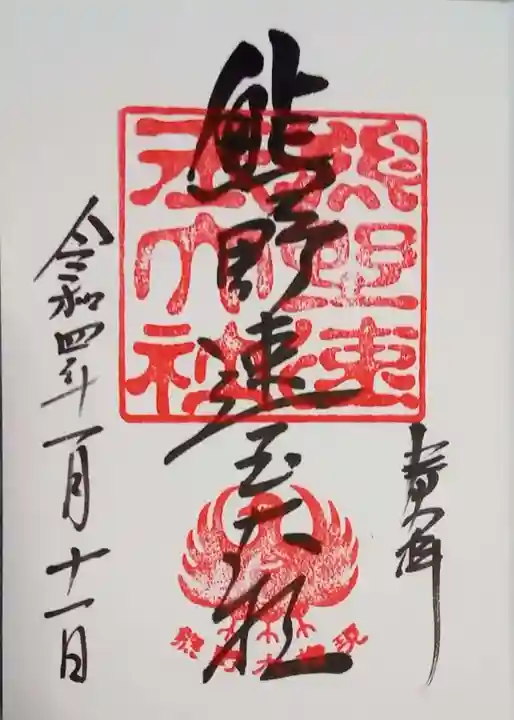 奉拝
熊野速玉大社
令和四年一月十一日
熊野速玉大神社
熊野大権現